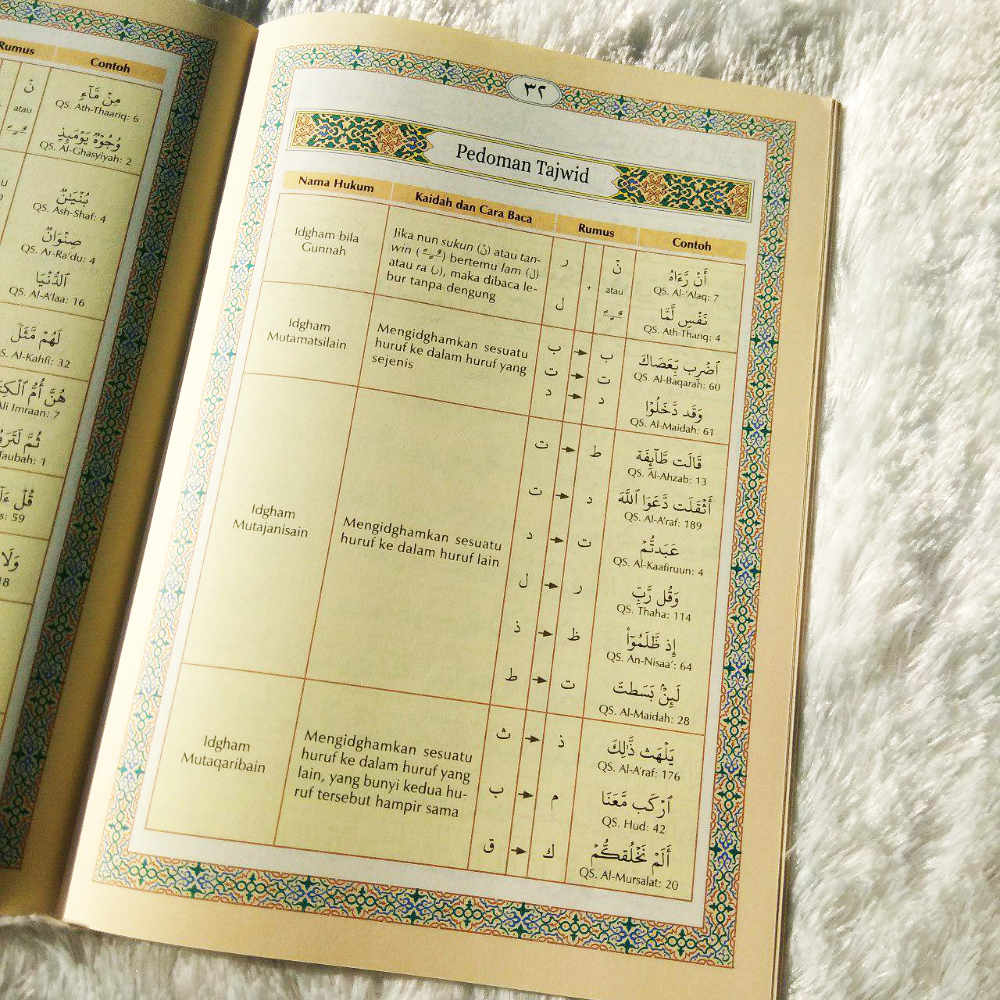 Rumus
Contoh
ن
atau
مِنْ مَّآءٍ
QS. Ath-Thaariq: 6
وُجُوْهٌ يَّوْمَىِٕذٍ
QS. Al-Ghasyiyah: 2
بُنْيَانٌ
QS. Ash-Shaf: 4
صِنْوَانٌ
QS. Ar-Ra'du: 4
اَلدُّنْيَا
QS. Al-A'laa: 16
لَهُمْ مَّثَلَ
QS. Al-Kahfi: 32
هُنَّ أُمُّ
Ali Imraan: 7
ثُمَّ
Taubah: 1
قُلْ
: 59
وَلَا
18
٣٢
Pedoman Tajwid
Nama Hukum
Kaidah dan Cara Baca
Rumus
Contoh
Idgham bila
Gunnah
Jika nun sukun (نْ) atau tan-
win (ـًـٍـٌ) bertemu lam (ل)
atau ra (ر), maka dibaca le-
bur tanpa dengung
ر
ل
نْ
atau
ـًـٍـٌ
أَنْ رَّءَاهُ
QS. Al-'Alaq: 7
نَفْسٍ لَّمَّا
QS. Ath-Thariq: 4
Idgham
Mutamatsilain
Mengidghamkan sesuatu
huruf ke dalam huruf yang
sejenis
ب → ب
ت → ت
د → د
اَضْرِب بِّعَصَاكَ
QS. Al-Baqarah: 60
وَقَد دَّخَلُوْا
QS. Al-Maidah: 61
Idgham
Mutajanisain
Mengidghamkan sesuatu
huruf ke dalam huruf lain
ت → ط
ت → د
د → ت
ل → ر
ذ → ظ
ط → ت
قَالَت طَّآىِٕفَة
QS. Al-Ahzab: 13
أَثْقَلَت دَّعَوَا ٱللَّهَ
QS. Al-A'raf: 189
عَبَدتُّمْ
QS. Al-Kaafiruun: 4
وَقُل رَّبِّ
QS. Thaha: 114
إِذ ظَّلَمُوْٓا
QS. An-Nisaa': 64
لَىِٕنْۢ بَسَطتَ
QS. Al-Maidah: 28
Idgham
Mutaqaribain
Mengidghamkan sesuatu
huruf ke dalam huruf yang
lain, yang bunyi kedua hu-
ruf tersebut hampir sama
ث → ذ
ب → م
ق → ك
يَلْهَث ذَّٰلِكَ
QS. Al-A'raf: 176
ٱرْكَب مَّعَنَا
QS. Hud: 42
أَلَمْ نَخْلُقكُّمْ
QS. Al-Mursalat: 20